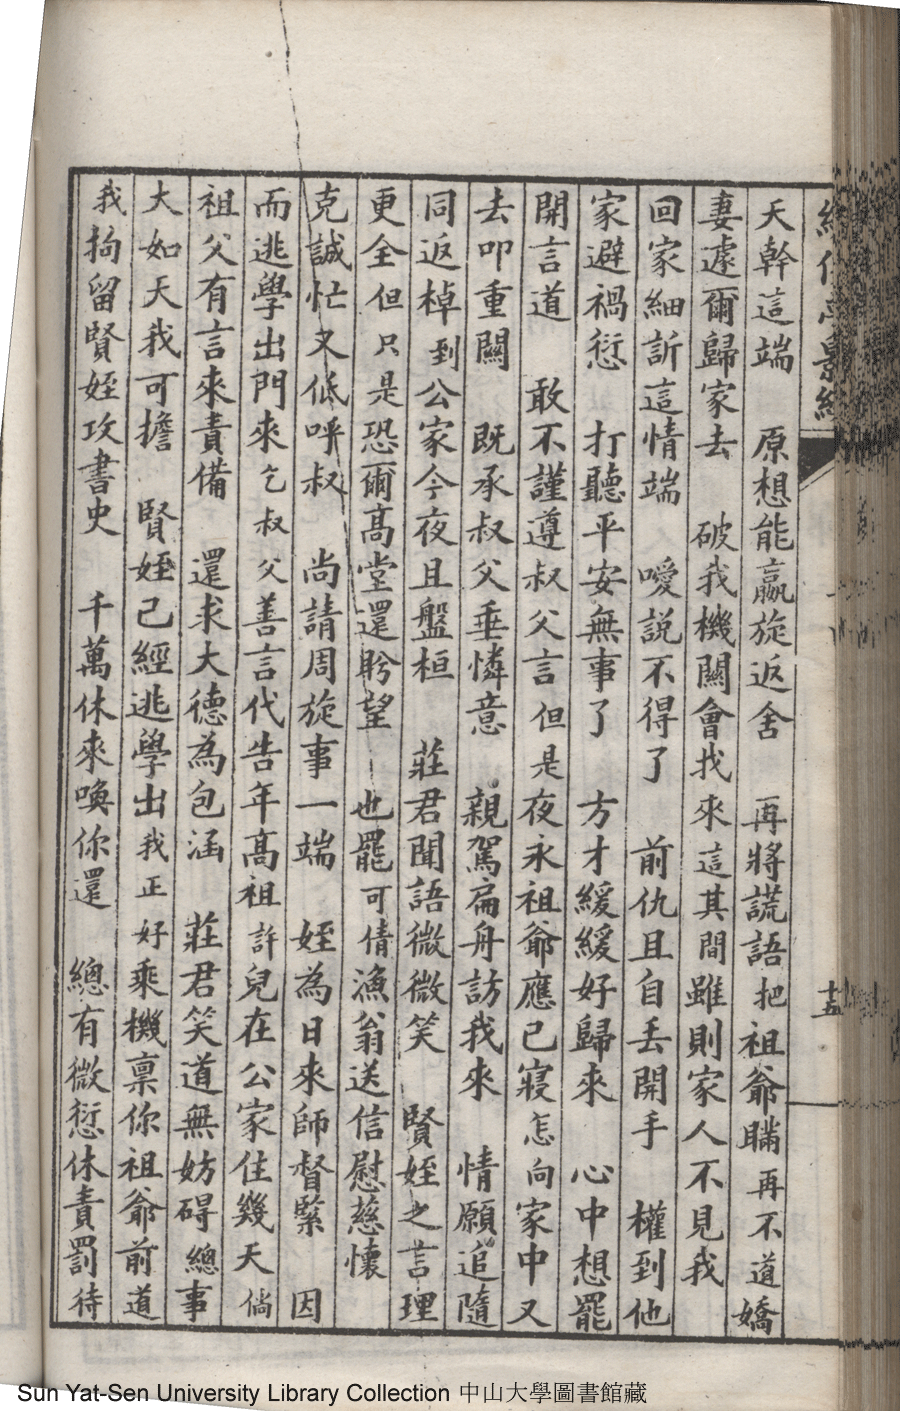 天幹這端　原想能贏旋返舍　再將謊語把祖爺瞞再不道嬌
妻遽爾歸家去　破我機關會找來這其間雖則家人不見我
回家細訴這情端　噯說不得了　前仇且自丢開手　權到他
家避禍愆　打聽平安無事了　方才緩緩好歸來　心中想罷
開言道　敢不謹遵叔父言但是夜永祖爺應已寢怎向家中又
去叩重關　既承叔父垂憐意　親駕扁舟訪我來　情願追隨
同返棹到公家今夜且盤桓　莊君聞語微微笑　賢姪之言理
更全但只是恐爾高堂還盻望　也罷可倩漁翁送信慰慈懷
克誠忙又低呼叔　尚請周旋事一端　姪為日來師督緊　因
而逃學出門來乞叔父善言代告年高祖許兒在公家住幾天倘
祖父有言來責備　還求大德為包涵　莊君笑道無妨碍總事
大如天我可擔　賢姪已經逃學出我正好乘機稟你祖爺前道
我拘留賢姪攻書史　千萬休來喚你還　總有微愆休責罰待
十五
Sun Yat-Sen University Library Collection 中山大學圖書館藏